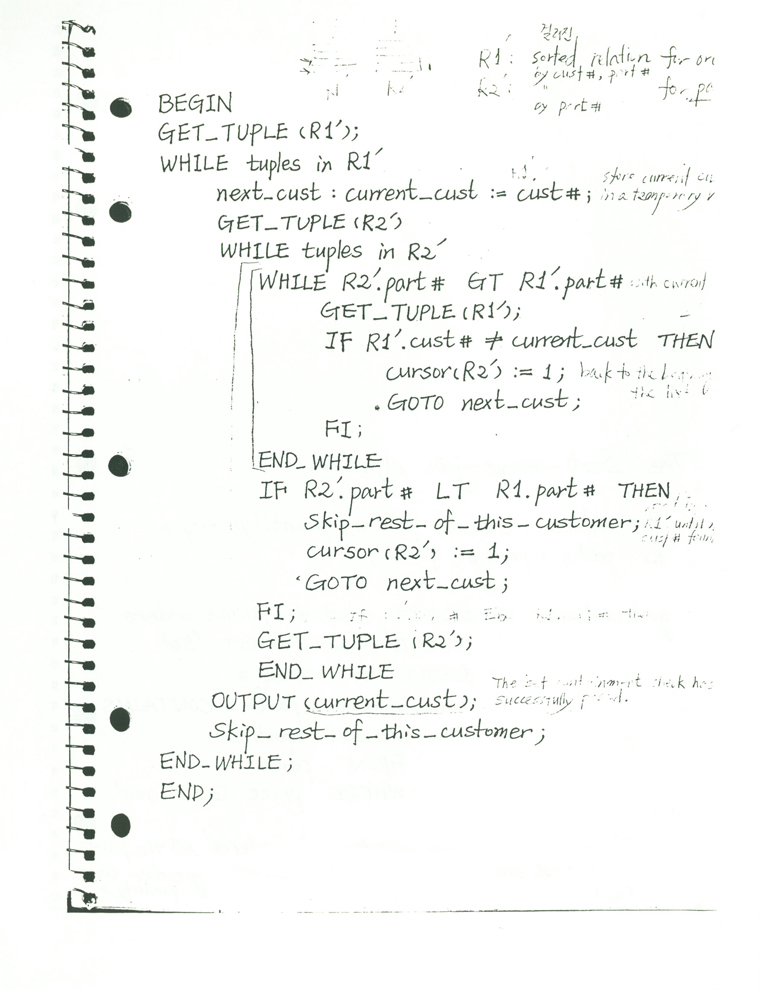 걸러진
R1': sorted relation for
by cust#, part #
R2': " for
by part #
BEGIN
GET_TUPLE (R1');
WHILE tuples in R1'
next_cust : current_cust := cust#; store current
in a temporary
GET_TUPLE (R2')
WHILE tuples in R2'
WHILE R2'.part# GT R1'.part# with current
GET_TUPLE (R1');
IF R1'.cust# ≠ current_cust THEN
cursor(R2') := 1; back to the
GOTO next_cust;
FI;
END_WHILE
IF R2'.part# LT R1.part# THEN
Skip_rest_of_this_customer; R1' until
cursor(R2') := 1;
GOTO next_cust;
FI;
GET_TUPLE (R2');
END_WHILE
OUTPUT (current_cust); The set containment check has
successfully
Skip_rest_of_this_customer;
END_WHILE;
END;